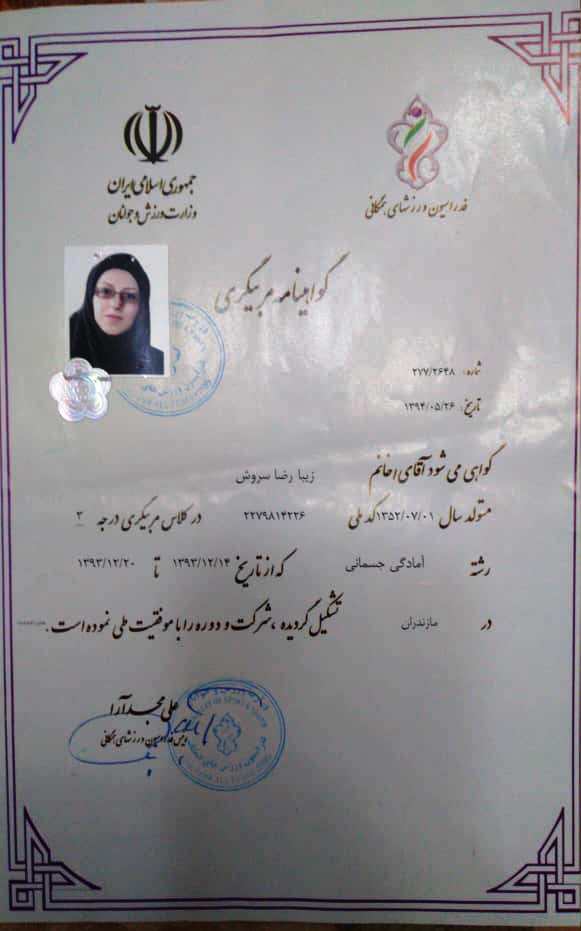 جمهوری اسلامی ایران
وزارت ورزش و جوانان
فدراسیون ورزشهای همگانی
گواهینامه مربیگری
شماره: ۲۷۷/۲۶۴۸
تاریخ: ۱۳۹۴/۰۵/۲۶
گواهی می شود آقای/خانم زیبا رضا سروش
متولد سال ۱۳۵۲/۰۷/۰۱ کد ملی ۲۲۷۹۸۱۴۲۲۶ در کلاس مربیگری درجه ۳
رشته آمادگی جسمانی که از تاریخ ۱۳۹۳/۱۲/۱۴ تا ۱۳۹۳/۱۲/۲۰
در مازندران تشکیل گردیده ، شرکت و دوره را با موفقیت طی نموده است .
علی مجدآرا
رئیس فدراسیون ورزشهای همگانی